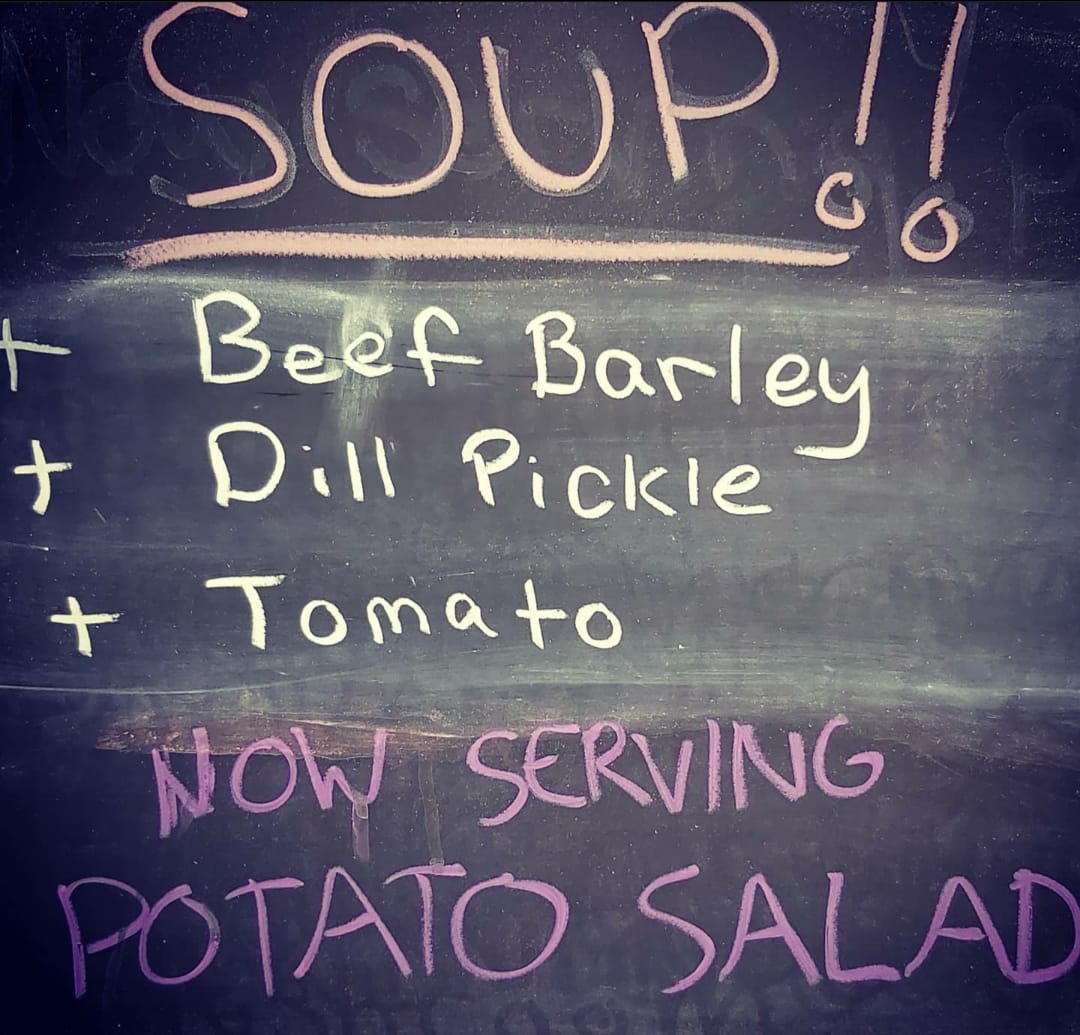 SOUP!!
+ Beef Barley
+ Dill Pickle
+ Tomato
NOW SERVING
POTATO SALAD